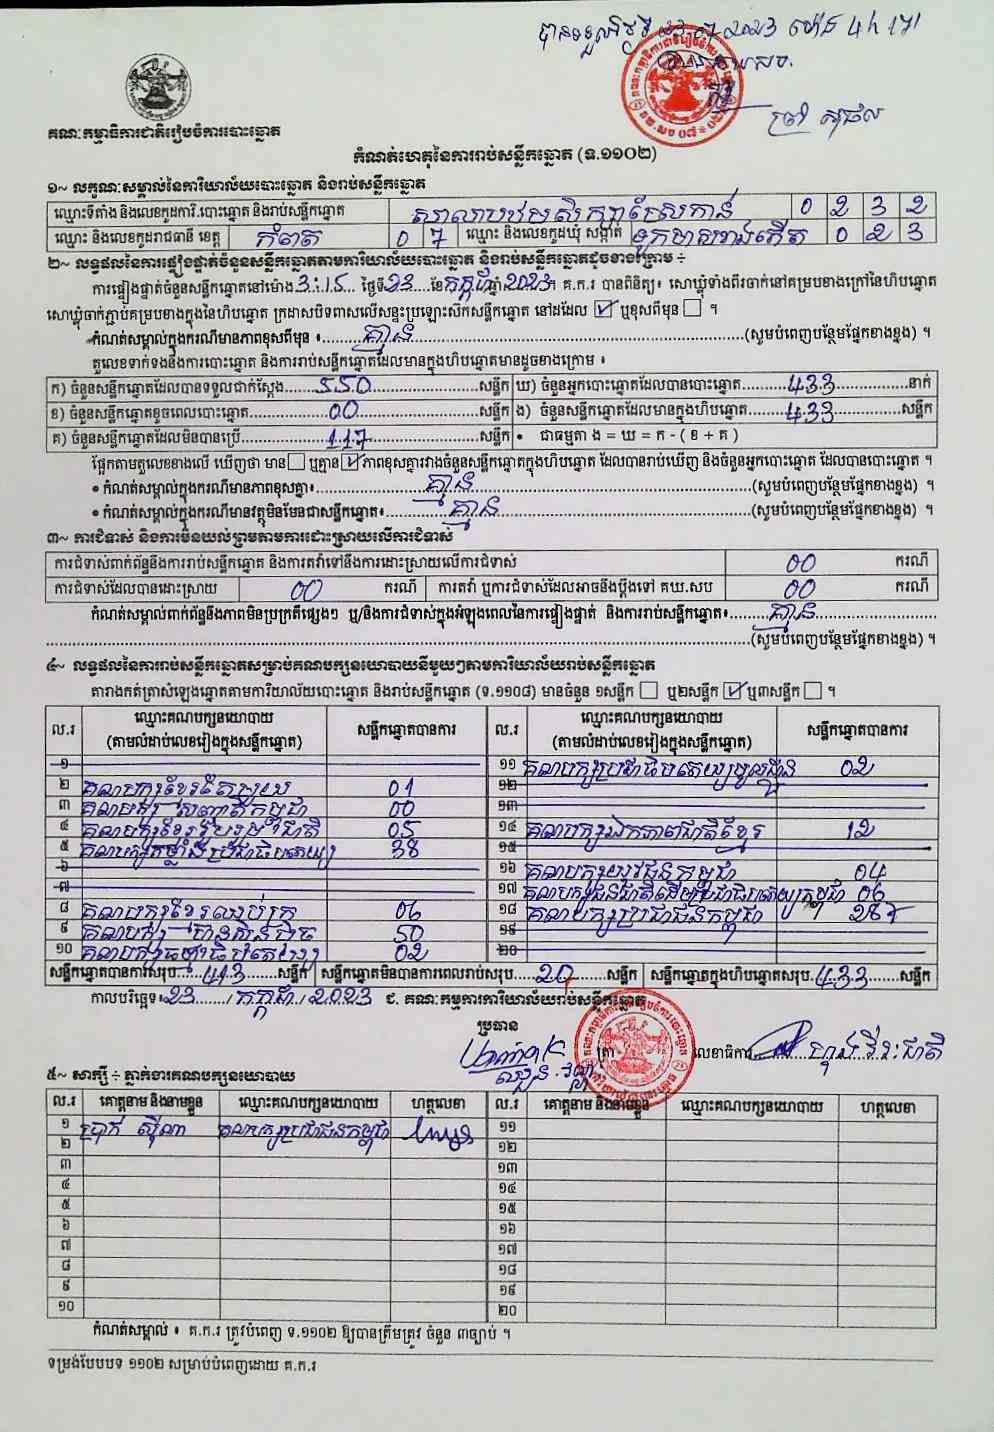 បានទទួលថ្ងៃទី 23.07.2023 ម៉ោង 4h
គណៈកម្មាធិការជាតិរៀបចំការបោះឆ្នោត
កំណត់ហេតុនៃការរាប់សន្លឹកឆ្នោត (ទ.១១០២)
១~ លក្ខណៈសម្គាល់នៃការិយាល័យបោះឆ្នោត និងរាប់សន្លឹកឆ្នោត
ឈ្មោះទីតាំង និងលេខកូដការិ.បោះឆ្នោត និងរាប់សន្លឹកឆ្នោត សាលាបឋមសិក្សាស្រែកាន់ 0 2 3 2
ឈ្មោះ និងលេខកូដរាជធានី ខេត្ត កំពត 0 7 ឈ្មោះ និងលេខកូដឃុំ សង្កាត់ ទូកមាសខាងកើត 0 2 3
២~ លទ្ធផលនៃការផ្ទៀងផ្ទាត់ចំនួនសន្លឹកឆ្នោតតាមការិយាល័យបោះឆ្នោត និងរាប់សន្លឹកឆ្នោតដូចខាងក្រោម ÷
ការផ្ទៀងផ្ទាត់ចំនួនសន្លឹកឆ្នោតនៅម៉ោង 3:15 ថ្ងៃទី 23 ខែ កក្កដា ឆ្នាំ 2023។ គ.ក.រ បានពិនិត្យ៖ សោឃ្លុំទាំងពីរចាក់នៅគម្របខាងក្រៅនៃហិបឆ្នោត
សោឃ្លុំចាក់ភ្ជាប់គម្របខាងក្នុងនៃហិបឆ្នោត ក្រដាសបិទពាសលើសន្ទះប្រឡោះស៊កសន្លឹកឆ្នោត នៅដដែល ☑ ឬខុសពីមុន ☐ ។
កំណត់សម្គាល់ក្នុងករណីមានភាពខុសពីមុន ៖ គ្មាន (សូមបំពេញបន្ថែមផ្នែកខាងខ្នង) ។
តួលេខទាក់ទងនឹងការបោះឆ្នោត និងការរាប់សន្លឹកឆ្នោតដែលមានក្នុងហិបឆ្នោតមានដូចខាងក្រោម ៖
ក) ចំនួនសន្លឹកឆ្នោតដែលបានទទួលជាក់ស្តែង 550 សន្លឹក ឃ) ចំនួនអ្នកបោះឆ្នោតដែលបានបោះឆ្នោត 433 នាក់
ខ) ចំនួនសន្លឹកឆ្នោតខូចពេលបោះឆ្នោត 00 សន្លឹក ង) ចំនួនសន្លឹកឆ្នោតដែលមានក្នុងហិបឆ្នោត 433 សន្លឹក
គ) ចំនួនសន្លឹកឆ្នោតដែលមិនបានប្រើ 117 សន្លឹក • ជាធម្មតា ង = ឃ = ក - ( ខ + គ )
ផ្អែកតាមតួលេខខាងលើ ឃើញថា មាន ☐ ឬគ្មាន ☑ ភាពខុសគ្នារវាងចំនួនសន្លឹកឆ្នោតក្នុងហិបឆ្នោត ដែលបានរាប់ឃើញ និងចំនួនអ្នកបោះឆ្នោត ដែលបានបោះឆ្នោត ។
• កំណត់សម្គាល់ក្នុងករណីមានភាពខុសគ្នា៖ គ្មាន (សូមបំពេញបន្ថែមផ្នែកខាងខ្នង) ។
• កំណត់សម្គាល់ក្នុងករណីមានវត្ថុមិនមែនជាសន្លឹកឆ្នោត៖ គ្មាន (សូមបំពេញបន្ថែមផ្នែកខាងខ្នង) ។
៣~ ការជំទាស់ និងការមិនយល់ព្រមតាមការដោះស្រាយលើការជំទាស់
ការជំទាស់ពាក់ព័ន្ធនឹងការរាប់សន្លឹកឆ្នោត និងការតវ៉ាទៅនឹងការដោះស្រាយលើការជំទាស់ 00 ករណី
ការជំទាស់ដែលបានដោះស្រាយ 00 ករណី ការតវ៉ា ឬការជំទាស់ដែលអាចនឹងប្តឹងទៅ គឃ.សប 00 ករណី
កំណត់សម្គាល់ពាក់ព័ន្ធនឹងភាពមិនប្រក្រតីផ្សេងៗ ឬ/និងការជំទាស់ក្នុងអំឡុងពេលនៃការផ្ទៀងផ្ទាត់ និងការរាប់សន្លឹកឆ្នោត៖ គ្មាន
(សូមបំពេញបន្ថែមផ្នែកខាងខ្នង) ។
៤~ លទ្ធផលនៃការរាប់សន្លឹកឆ្នោតសម្រាប់គណបក្សនយោបាយនីមួយៗតាមការិយាល័យរាប់សន្លឹកឆ្នោត
តារាងកត់ត្រាសំឡេងឆ្នោតតាមការិយាល័យបោះឆ្នោត និងរាប់សន្លឹកឆ្នោត (ទ.១១០៨) មានចំនួន ១សន្លឹក ☐ ឬ២សន្លឹក ☑ ឬ៣សន្លឹក ☐ ។
ល.រ ឈ្មោះគណបក្សនយោបាយ (តាមលំដាប់លេខរៀងក្នុងសន្លឹកឆ្នោត) សន្លឹកឆ្នោតបានការ ល.រ ឈ្មោះគណបក្សនយោបាយ (តាមលំដាប់លេខរៀងក្នុងសន្លឹកឆ្នោត) សន្លឹកឆ្នោតបានការ
១ ១១ គណបក្សប្រជាធិបតេយ្យមូលដ្ឋាន 02
២ គណបក្សខ្មែរតែមួយ 01 ១២
៣ គណបក្ស សញ្ជាតិកម្ពុជា 00 ១៣
៤ គណបក្សខ្មែររួបរួមជាតិ 05 ១៤ គណបក្សឯកភាពជាតិខ្មែរ 12
៥ គណបក្សកម្លាំងប្រជាធិបតេយ្យ 38 ១៥
៦ ១៦ គណបក្សយុវជនកម្ពុជា 04
៧ ១៧ គណបក្សជនជាតិដើមប្រជាធិបតេយ្យកម្ពុជា 06
៨ គណបក្សខ្មែរឈប់ក្រ 06 ១៨ គណបក្សប្រជាជនកម្ពុជា 287
៩ 50 ១៩
១០ គណបក្សធម្មាធិបតេយ្យ 02 ២០
សន្លឹកឆ្នោតបានការសរុប 413 សន្លឹក សន្លឹកឆ្នោតមិនបានការពេលរាប់សរុប 20 សន្លឹក សន្លឹកឆ្នោតក្នុងហិបឆ្នោតសរុប 433 សន្លឹក
កាលបរិច្ឆេទ៖ 23 / កក្កដា / 2023 ជ. គណៈកម្មការការិយាល័យរាប់សន្លឹកឆ្នោត
ប្រធាន
ត្រា លេខាធិការ
៥~ សាក្សី ÷ ភ្នាក់ងារគណបក្សនយោបាយ
ល.រ គោត្តនាម និងនាមខ្លួន ឈ្មោះគណបក្សនយោបាយ ហត្ថលេខា ល.រ គោត្តនាម និងនាមខ្លួន ឈ្មោះគណបក្សនយោបាយ ហត្ថលេខា
១ ប្រាក់ ស៊ីណា គណបក្សប្រជាជនកម្ពុជា ១១
២ ១២
៣ ១៣
៤ ១៤
៥ ១៥
៦ ១៦
៧ ១៧
៨ ១៨
៩ ១៩
១០ ២០
កំណត់សម្គាល់ ៖ គ.ក.រ ត្រូវបំពេញ ទ.១១០២ ឱ្យបានត្រឹមត្រូវ ចំនួន ៣ច្បាប់ ។
ទម្រង់បែបបទ ១១០២ សម្រាប់បំពេញដោយ គ.ក.រ